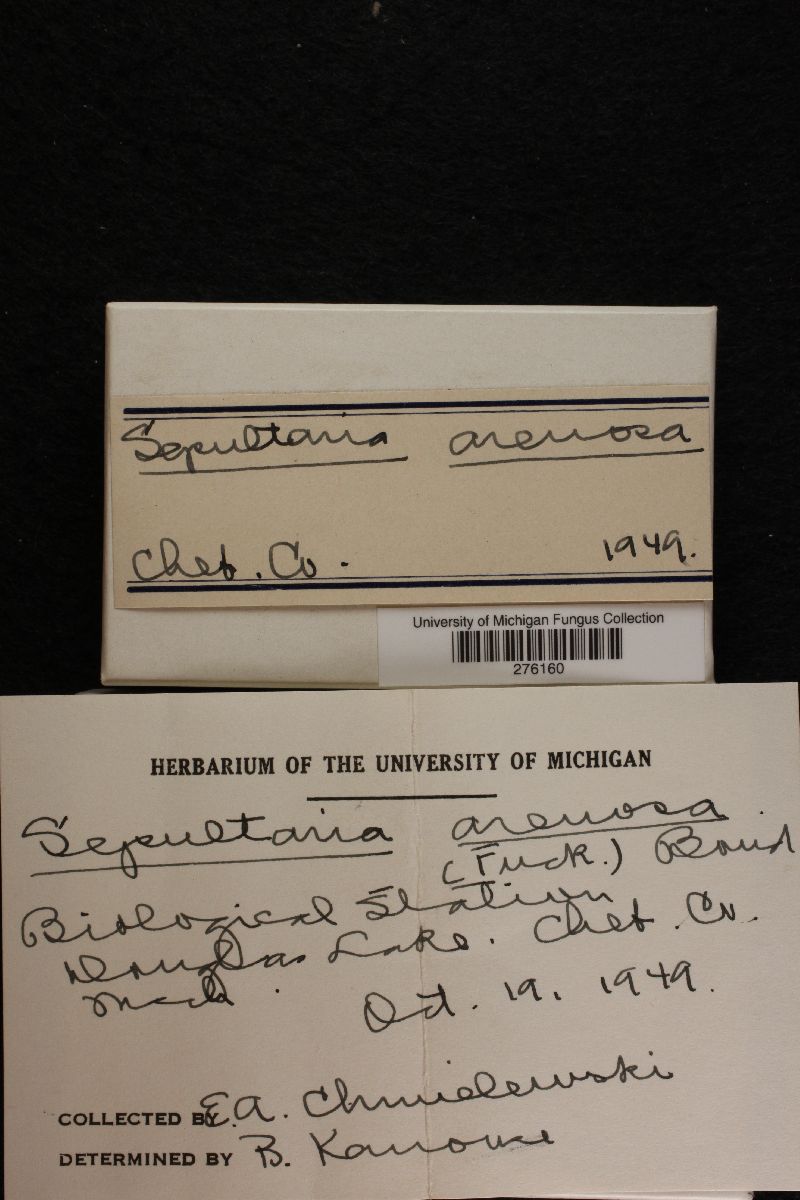 Sepultaria arenosa
Cheb. Co. 1949.
University of Michigan Fungus Collection
276160
HERBARIUM OF THE UNIVERSITY OF MICHIGAN
Sepultaria arenosa
(Fuck.) Boud
Biological Station
Douglas Lake. Cheb. Co.
Mich.
Oct. 19, 1949.
COLLECTED BY E.A. Chmielewski
DETERMINED BY B. Kanouse